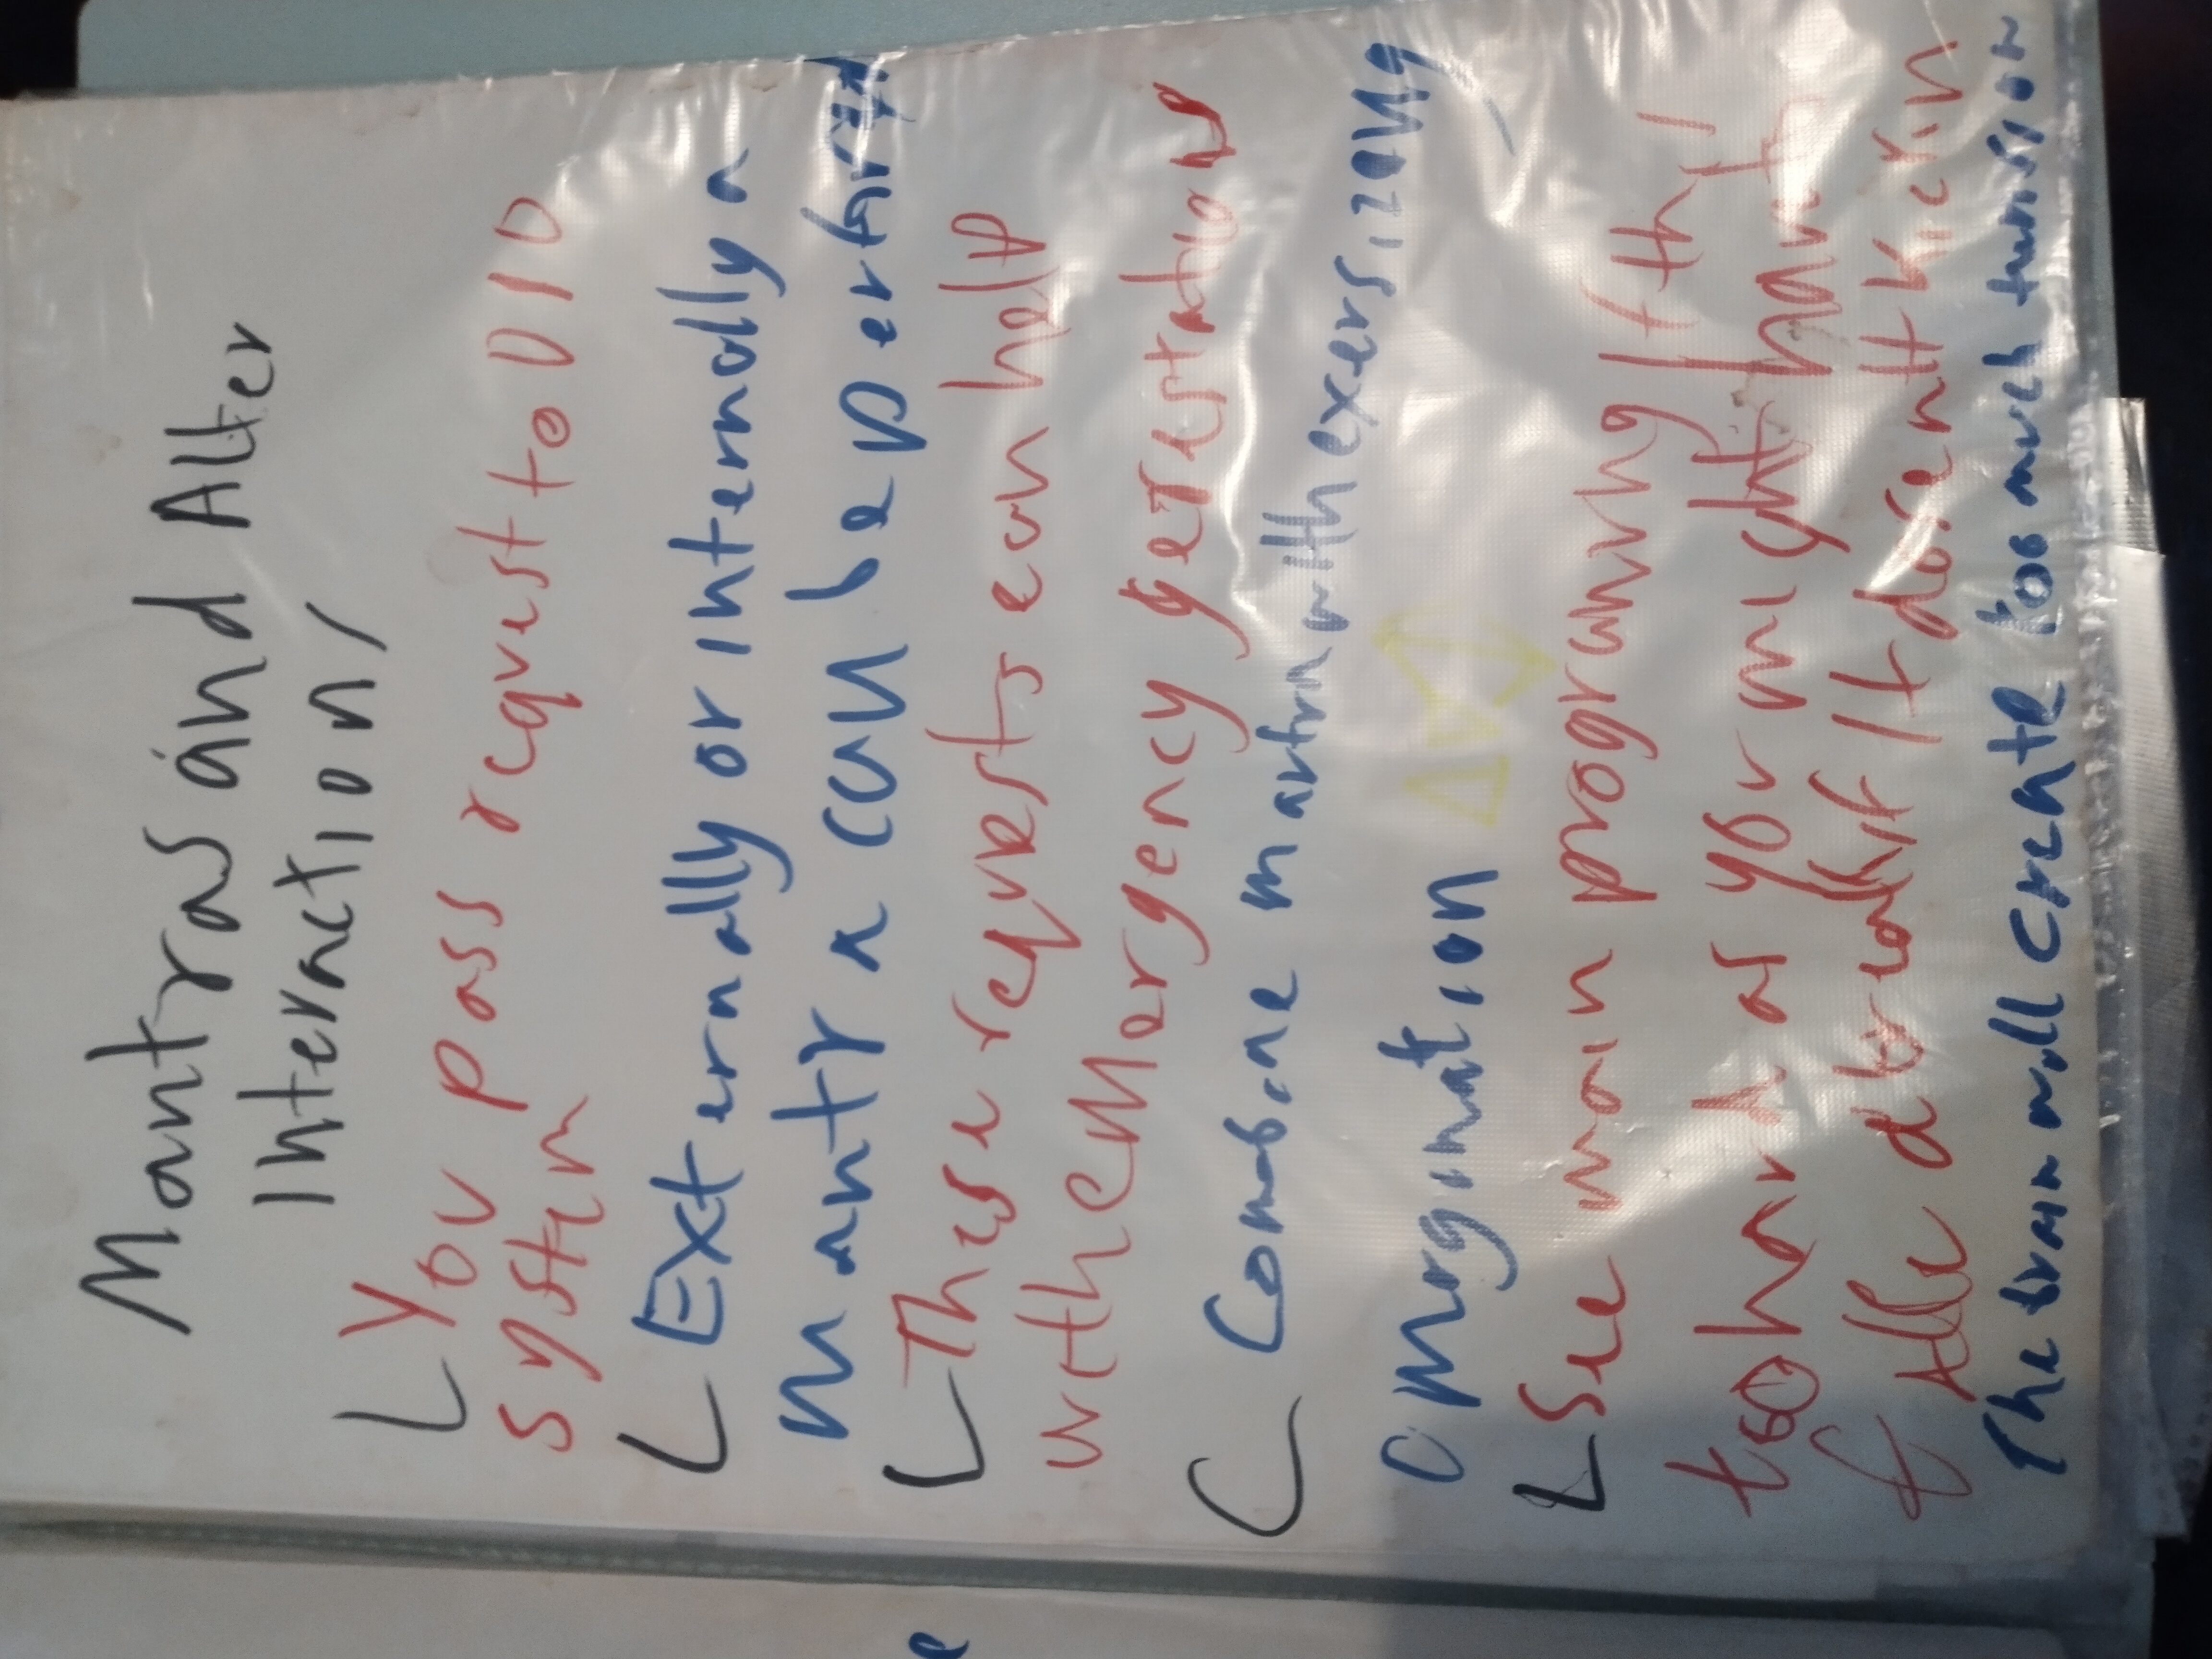 Mantras and Alter
Interaction/
You pass request to DID
system
Externally or internally a
mantra can be perform
These requests can help
with emergency gestation
Combine mantra with exersizong
omagination
See main programing / th/
to hard as your mind
Alla it dosent kicin
The brain will create too much tension